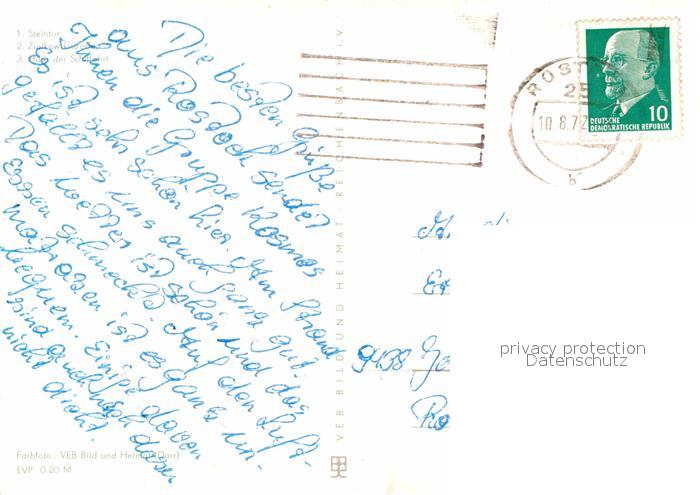 1. Steintor
2.
3. Haus der Schiffahrt
Die besten Grüße
aus Rostock sendet
Ihnen die Gruppe Kosmos
Es ist sehr schön hier. Am Strand
gefällt es uns auch ganz gut.
Das Wetter ist schön und das
Essen schmeckt. Auf den Luft-
matrazen ist es ganz un-
bequem. Einige davon
sind auch noch dazu
nicht dicht.
Farbfoto: VEB Bild und Heimat (Darr)
EVP 0.20 M
VEB BILD UND HEIMAT REICHENBACH I.V.
ROST
25
10.8.72
b
10
DEUTSCHE
DEMOKRATISCHE REPUBLIK
9438
privacy protection
Datenschutz